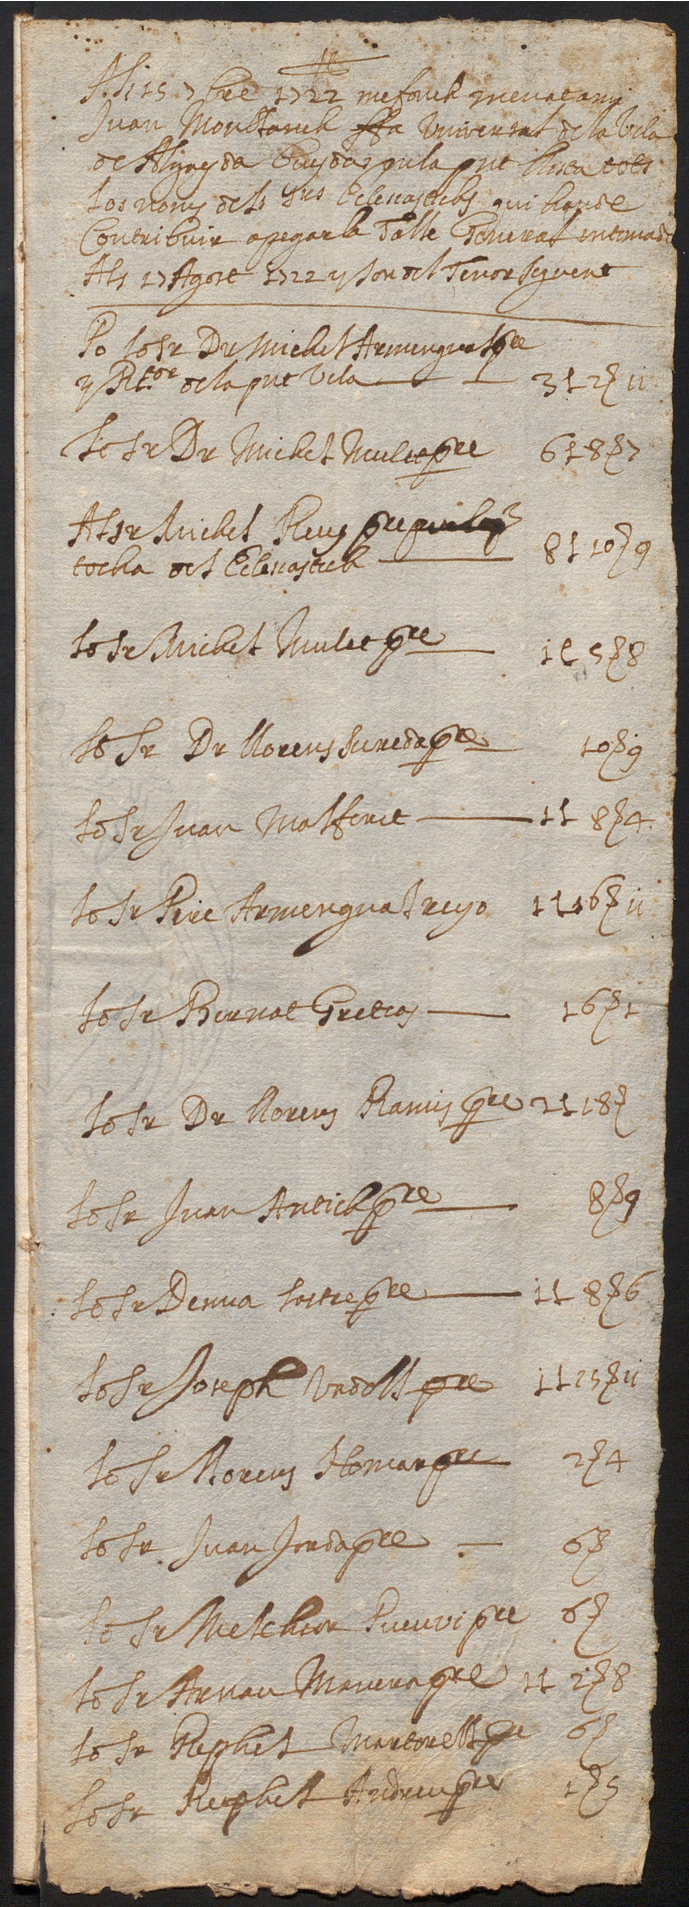 Als 15 7bre 1722 me fonch menar amj
Juan Mondtanch ssa Universal de la Vila
de Algayda Ciuydar pula pnt llista tots
los noms dels Srs Eclesiastichs qui han de
Contribuir a pegar la Talle General intimade
Als 17 Agost 1722 y son del Tenor seguent
Po lo Sr Dr Michel Armengual pre
y Rtor de la pnt Vila 3 l 2 s 11
lo Sr Dr Michel Mulet pre 6 l 8 s 7
Al Sr Michel Reus pre
tocha del Eclesiastich 8 l 10 s 9
lo Sr Michel Mulet pre 1 l 5 s 8
lo Sr Dr Llorens Sureda pre 10 s 9
lo Sr Juan Malferit 1 l 8 s 4
lo Sr Pere Armengual reyo 1 l 16 s 11
lo Sr Bernat Tretas 16 s 1
lo Sr Dr Llorens Ramis pre 2 l 18 s
lo Sr Juan Antich pre 8 s 9
lo Sr Denua Sastre pre 1 l 8 s 6
lo Sr Joseph Vadell pre 1 l 15 s 11
lo Sr Llorens Homar pre 2 s 4
lo Sr Juan Jorda pre 6 s
lo Sr Melchior Pucuvi pre 6 s
lo Sr Arnau Manera pre 1 l 2 s 8
lo Sr Rephel Martorell pre 6 s
lo Sr Rephel Andreu pre 1 s 5